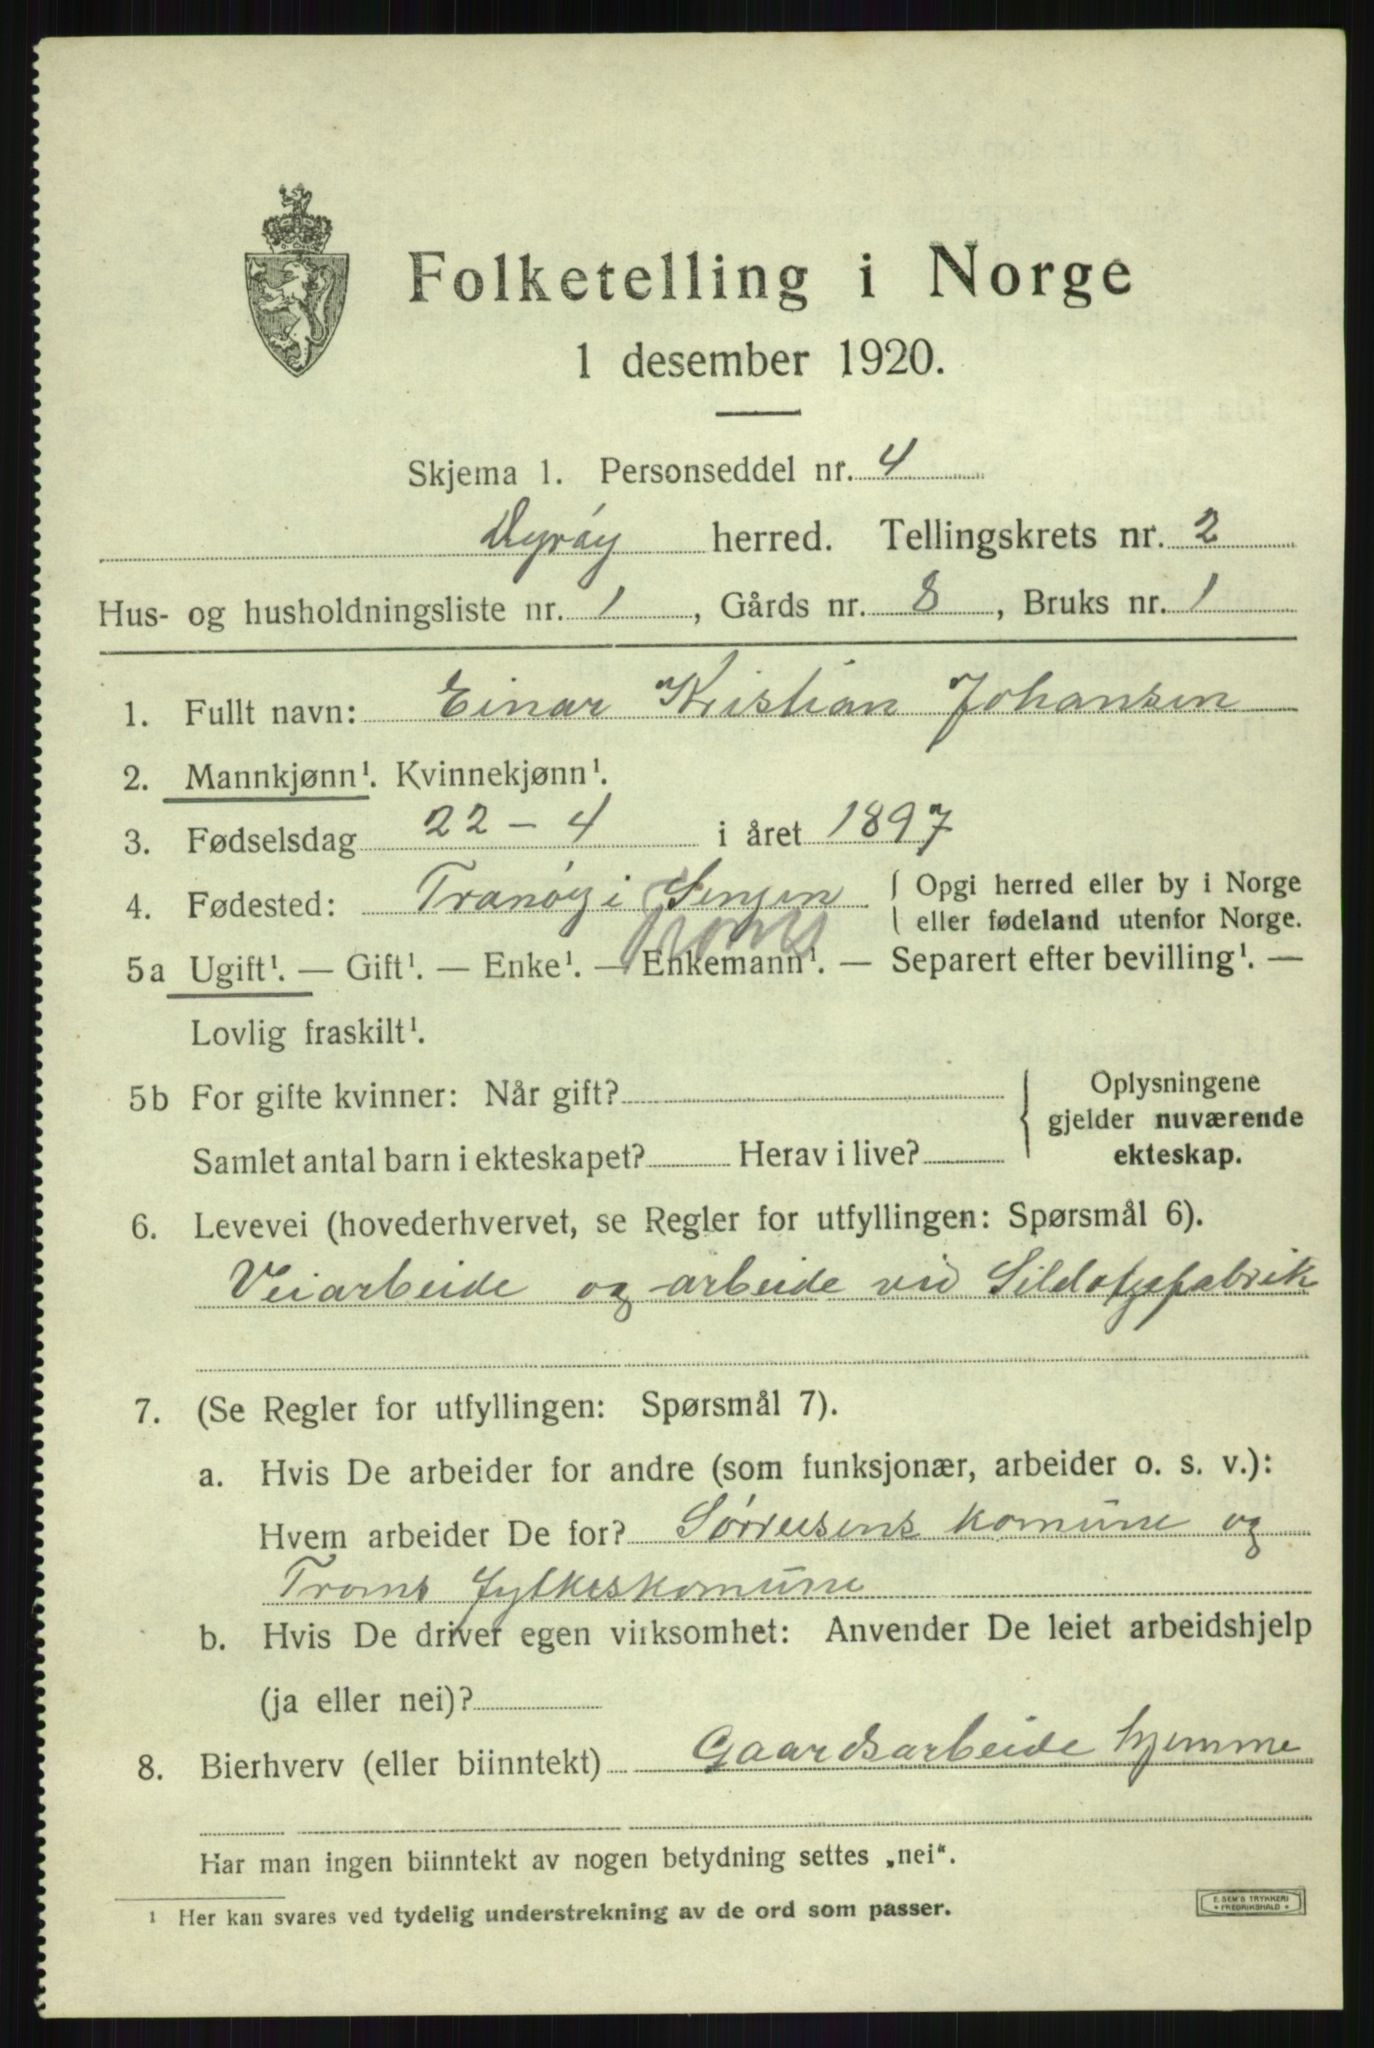 Folketelling i Norge
1 desember 1920.
Skjema 1. Personseddel nr. 4
Dyröy herred. Tellingskrets nr. 2
Hus- og husholdningsliste nr. 1, Gårds nr. 8, Bruks nr. 1
1. Fullt navn: Einar Kristian Johansen
2. Mannkjønn¹. Kvinnekjønn¹.
3. Fødselsdag 22 - 4 i året 1897
4. Fødested: Tranöy i Senjen { Opgi herred eller by i Norge
eller fødeland utenfor Norge.
Troms
5a Ugift¹. — Gift¹. — Enke¹. — Enkemann¹. — Separert efter bevilling¹. —
Lovlig fraskilt¹.
5b For gifte kvinner: Når gift? { Oplysningene
gjelder nuværende
Samlet antal barn i ekteskapet? Herav i live? ekteskap.
6. Levevei (hovederhvervet, se Regler for utfyllingen: Spørsmål 6).
Veiarbeide og arbeide ved Sildoljefabrik
7. (Se Regler for utfyllingen: Spørsmål 7).
a. Hvis De arbeider for andre (som funksjonær, arbeider o. s. v.):
Hvem arbeider De for? Sörreisens komune og
Troms fylkeskomune
b. Hvis De driver egen virksomhet: Anvender De leiet arbeidshjelp
(ja eller nei)?
8. Bierhverv (eller biinntekt) Gaardsarbeide hjemme
Har man ingen biinntekt av nogen betydning settes „nei“.
¹ Her kan svares ved tydelig understrekning av de ord som passer.
E. SEM'S TRYKKERI
• FREDRIKSHALD •